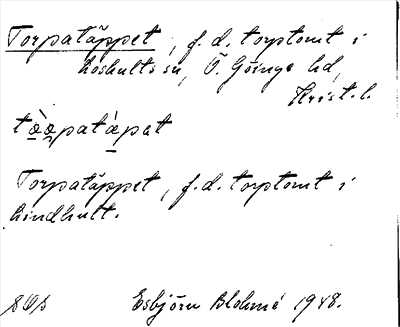 Torpatäppet, f.d. torptomt i
Loshults sn, Ö. Göinge hd,
Krist. l.
Torpatäppet, f.d. torptomt i
hindhult.
Esbjörn Blohmé 1948.